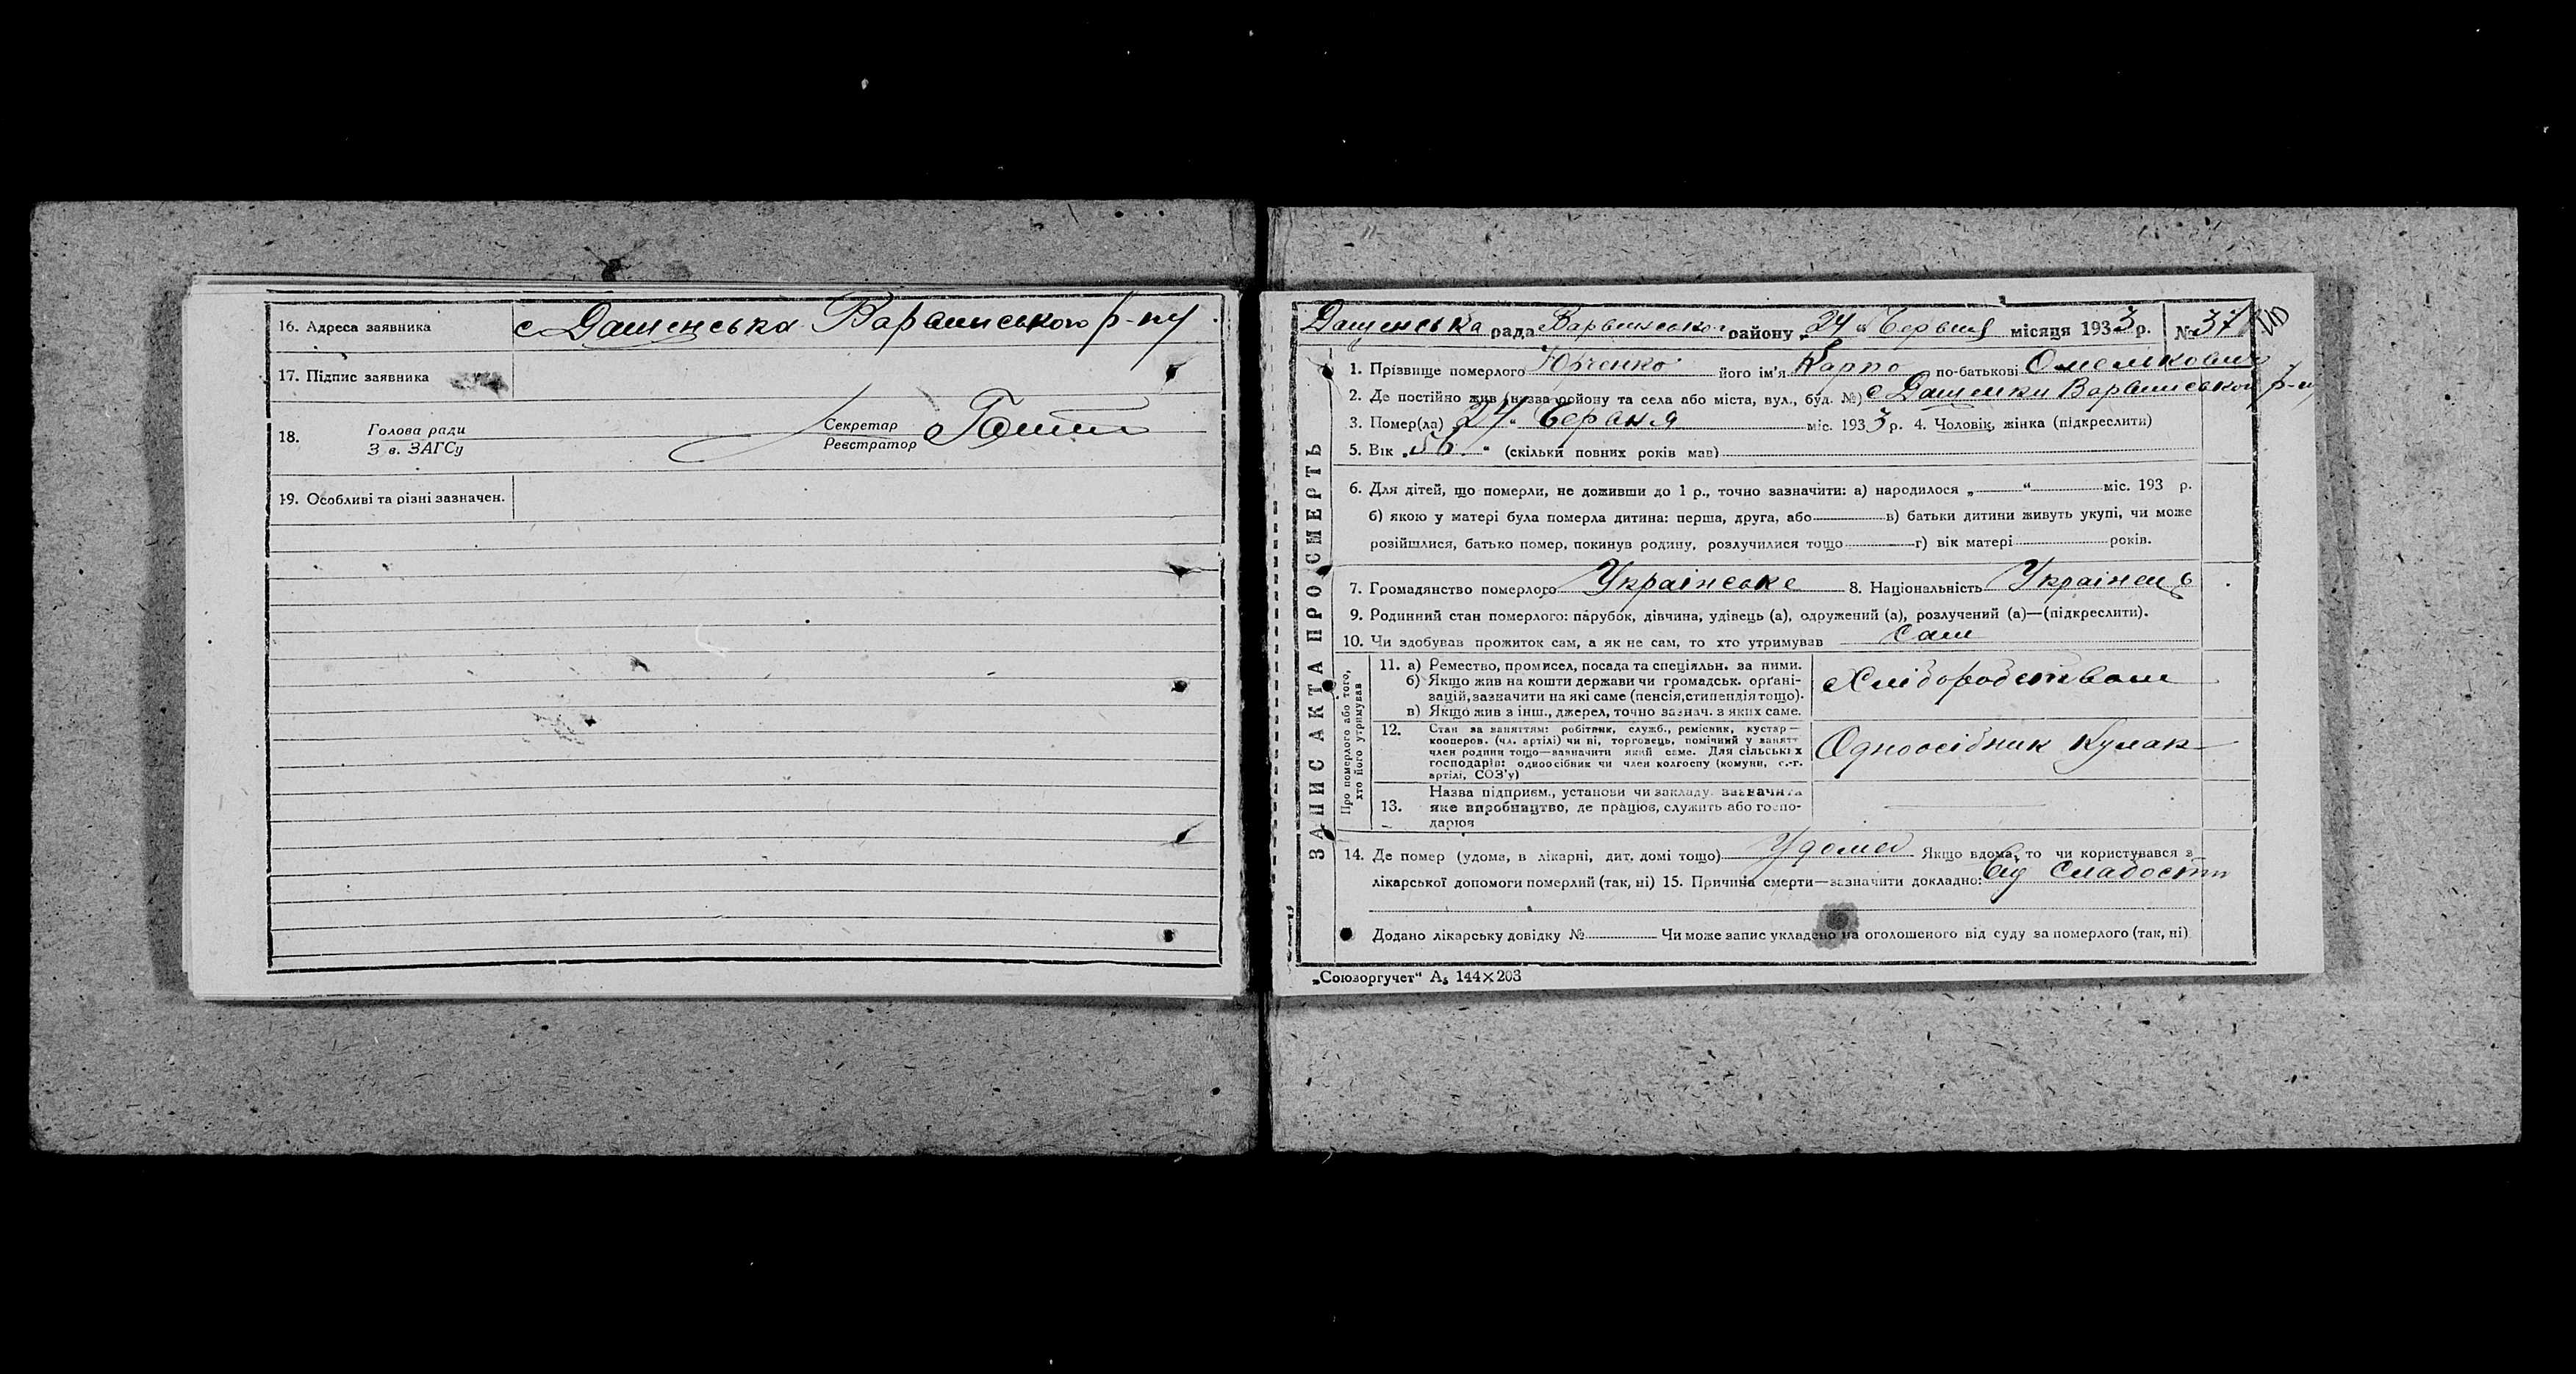 16. Адреса заявника с Дащенська Варвинського р-ну
17. Підпис заявника
18. Голова ради
З в. ЗАГСу
Секретар
Реєстратор
19. Особливі та різні зазначен.
ЗАПИС АКТА ПРО СМЕРТЬ
Дащенська рада Варвинського району „24" Червня місяця 1933 р. № 37
1. Прізвище померлого Юрченко його ім'я Карпо по-батькові Омелькович
2. Де постійно жив (назва району та села або міста, вул., буд. №) с Дащенки Варвинського р-н
3. Помер(ла) „24" Червня міс. 1933 р. 4. Чоловік, жінка (підкреслити)
5. Вік „56" (скільки повних років мав)
6. Для дітей, що померли, не доживши до 1 р., точно зазначити: а) народилося „ " міс. 193 р.
б) якою у матері була померла дитина: перша, друга, або в) батьки дитини живуть укупі, чи може
розійшлися, батько помер, покинув родину, розлучилися тощо г) вік матері років.
7. Громадянство померлого Українське 8. Національність Українець
9. Родинний стан померлого: парубок, дівчина, удівець (а), одружений (а), розлучений (а)—(підкреслити).
10. Чи здобував прожиток сам, а як не сам, то хто утримував сам
Про померлого або того,
хто його утримував
11. а) Ремество, промисел, посада та спеціяльн. за ними.
б) Якщо жив на кошти держави чи громадськ. орґані-
зацій, зазначити на які саме (пенсія, стипендія тощо).
в) Якщо жив з інш., джерел, точно зазнач. з яких саме.
Хліборобством
12. Стан за заняттям: робітник, служб., ремісник, кустар—
кооперов. (чл. артілі) чи ні, торговець, помічний у занятт
член родини тощо—зазначити який саме. Для сільських
господарів: одноосібник чи член колгоспу (комуни, с.-г.
артілі, СОЗ'у)
Одноосібник Кулак
13. Назва підприєм., установи чи закладу. зазначити
яке виробництво, де працює, служить або госпо-
дарює
14. Де помер (удома, в лікарні, дит. домі тощо) Удома Якщо вдома, то чи користувався з
лікарської допомоги померлий (так, ні) 15. Причина смерти—зазначити докладно: від Слабости
Додано лікарську довідку № Чи може запис укладено на оголошеного від суду за померлого (так, ні)
„Союзоргучет" А₅ 144×203